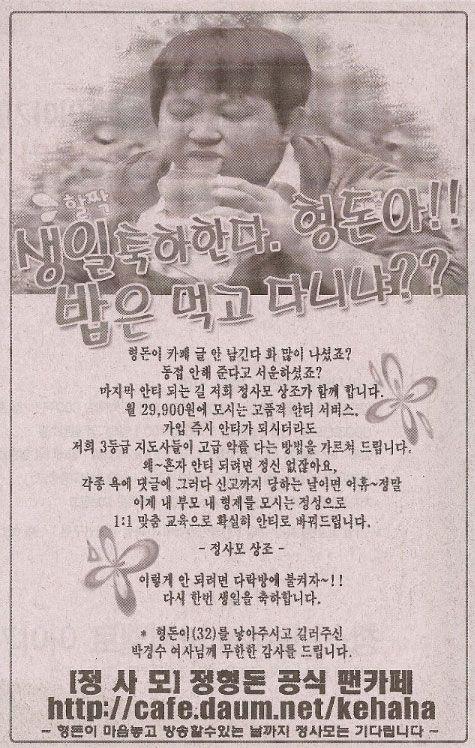 할짝
생일축하한다. 형돈아!!
밥은 먹고 다니냐??
형돈이 카페 글 안 남긴다 화 많이 나셨죠?
동접 안해 준다고 서운하셨죠?
마지막 안티 되는 길 저희 정사모 상조가 함께 합니다.
월 29,900원에 모시는 고품격 안티 서비스.
가입 즉시 안티가 되시더라도
저희 3등급 지도사들이 고급 악플 다는 방법을 가르쳐 드립니다.
왜~혼자 안티 되려면 정신 없잖아요,
각종 욕에 댓글에 그러다 신고까지 당하는 날이면 어휴~정말
이제 내 부모 내 형제를 모시는 정성으로
1:1 맞춤 교육으로 확실히 안티로 바꿔드립니다.
- 정사모 상조 -
이렇게 안 되려면 다락방에 불켜자~!!
다시 한번 생일을 축하합니다.
* 형돈이(32)를 낳아주시고 길러주신
박경수 여사님께 무한한 감사를 드립니다.
[정 사 모] 정형돈 공식 팬카페
http://cafe.daum.net/kehaha
- 형돈이 마음놓고 방송할수있는 날까지 정사모는 기다립니다 -